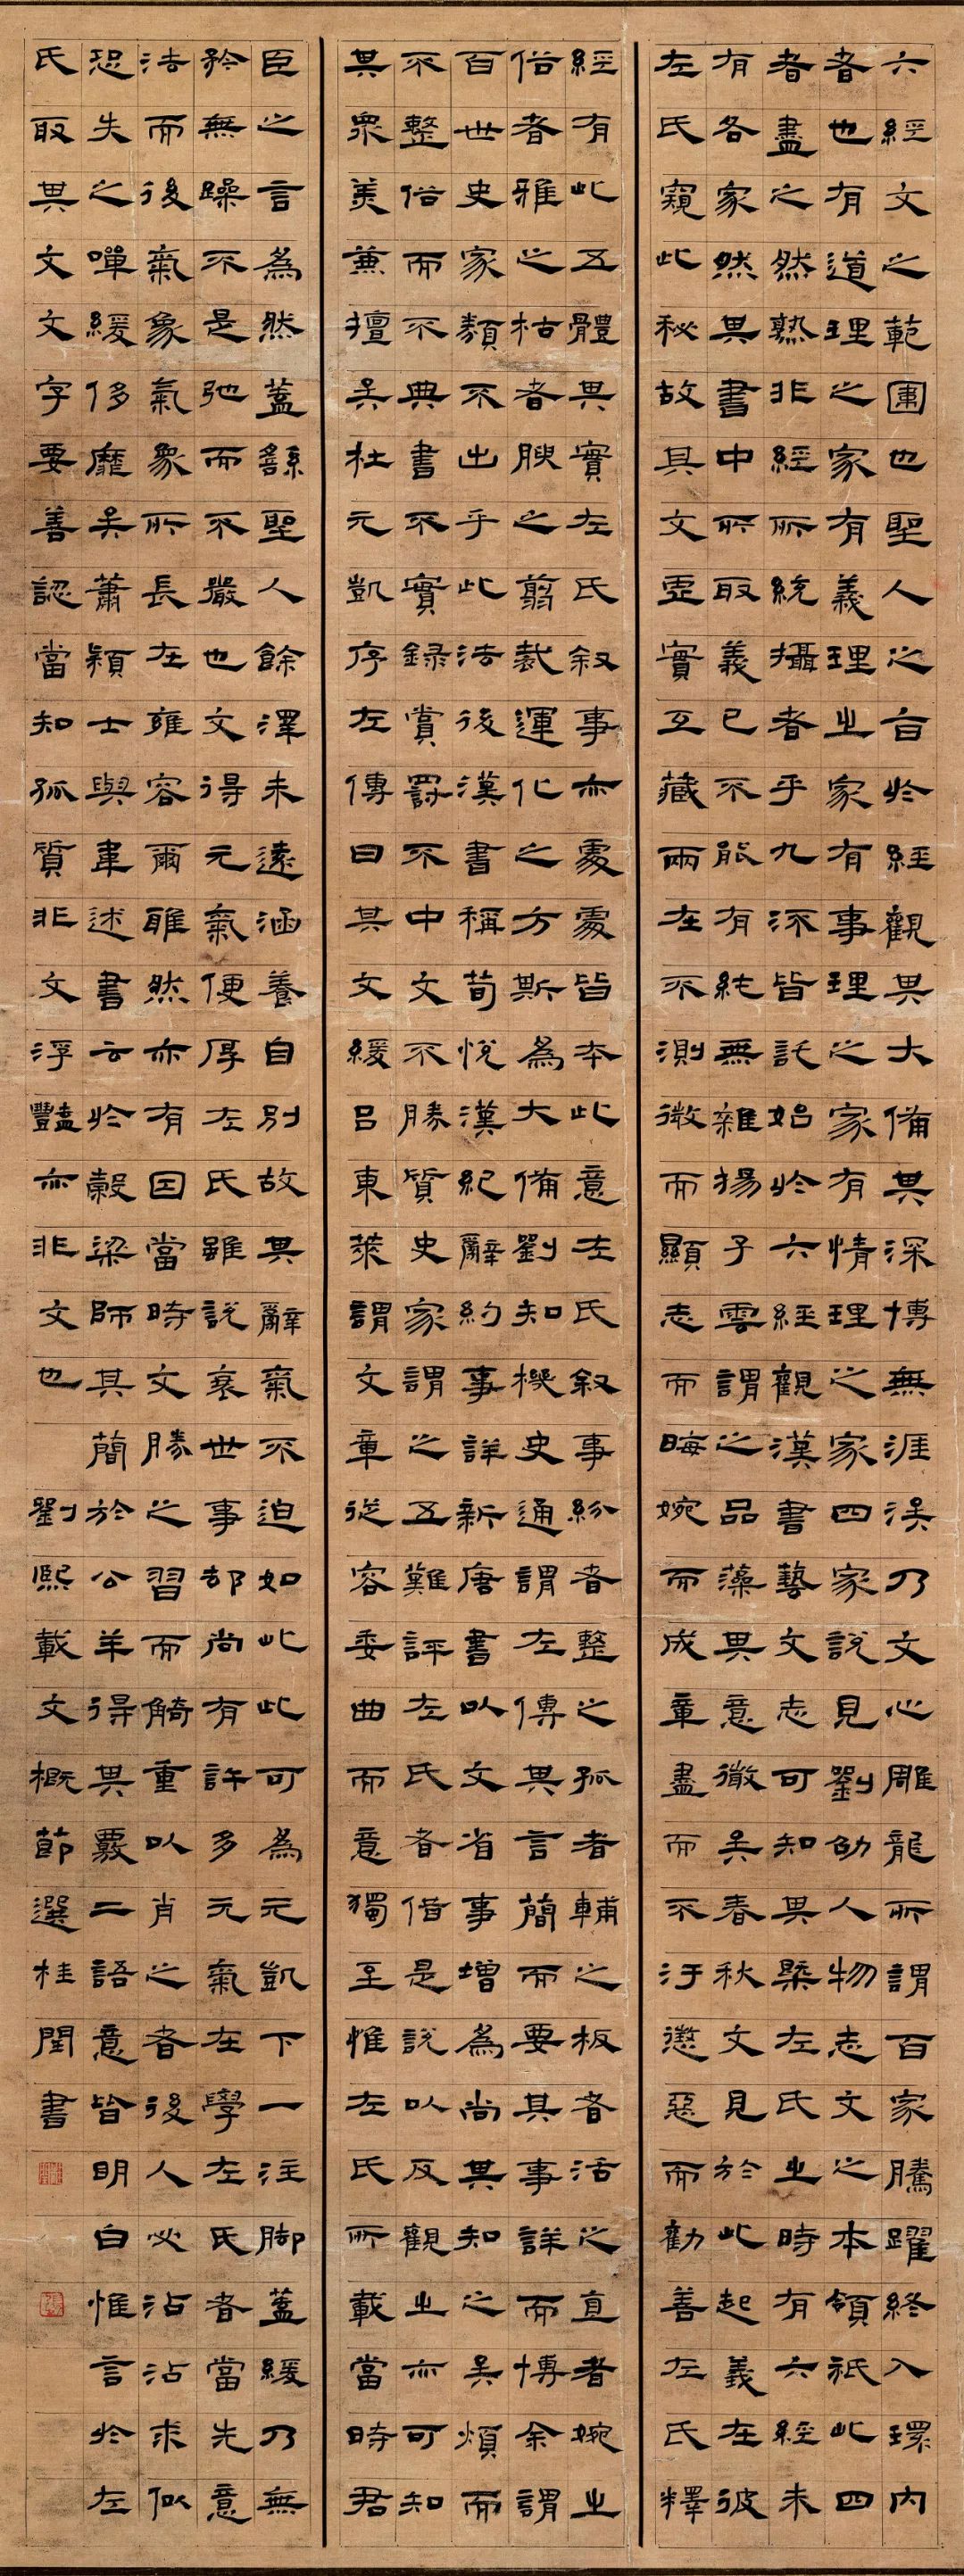 六經文之範圍也聖人之旨於經觀其大備其深博無涯涘乃文心雕龍所謂百家騰躍終入環內
者也有道理之家有義理之家有事理之家有情理之家四家說見劉劭人物志文之本領祇此四
者盡之然孰非經所統攝者乎九流皆託始於六經觀漢書藝文志可知其槩左氏之時有六經未
有各家然其書中所取義已不能有純無雜揚子雲謂之品藻其意微矣春秋文見於此起義在彼
左氏窺此秘故其文虛實互藏兩在不測微而顯志而晦婉而成章盡而不汙懲惡而勸善左氏釋
經有此五體其實左氏叙事亦處處皆本此意左氏叙事紛者整之孤者輔之板者活之直者婉之
俗者雅之枯者腴之剪裁運化之方斯為大備劉知幾史通謂左傳其言簡而要其事詳而博余謂
百世史家類不出乎此法後漢書稱荀悅漢紀辭約事詳新唐書以文省事增為尚其知之矣煩而
不整俗而不典書不實録賞罰不中文不勝質史家謂之五難評左氏者借是說以反觀之亦可知
其衆美兼擅矣杜元凱序左傳曰其文緩呂東萊謂文章從容委曲而意獨至惟左氏所載當時君
臣之言為然蓋繇聖人餘澤未遠涵養自別故其辭氣不迫如此此可為元凱下一注脚蓋緩乃無
矜無躁不是弛而不嚴也文得元氣便厚左氏雖說衰世事却尚有許多元氣在學左氏者當先意
法而後氣象氣象所長在雍容爾雅然亦有因當時文勝之習而觭重以肖之者後人必沾沾求似
恐失之嘽緩侈靡矣蕭穎士與韋述書云於穀梁師其簡於公羊得其覈二語意皆明白惟言於左
氏取其文文字要善認當知孤質非文浮豔亦非文也 劉熙載文概節選桂閏書